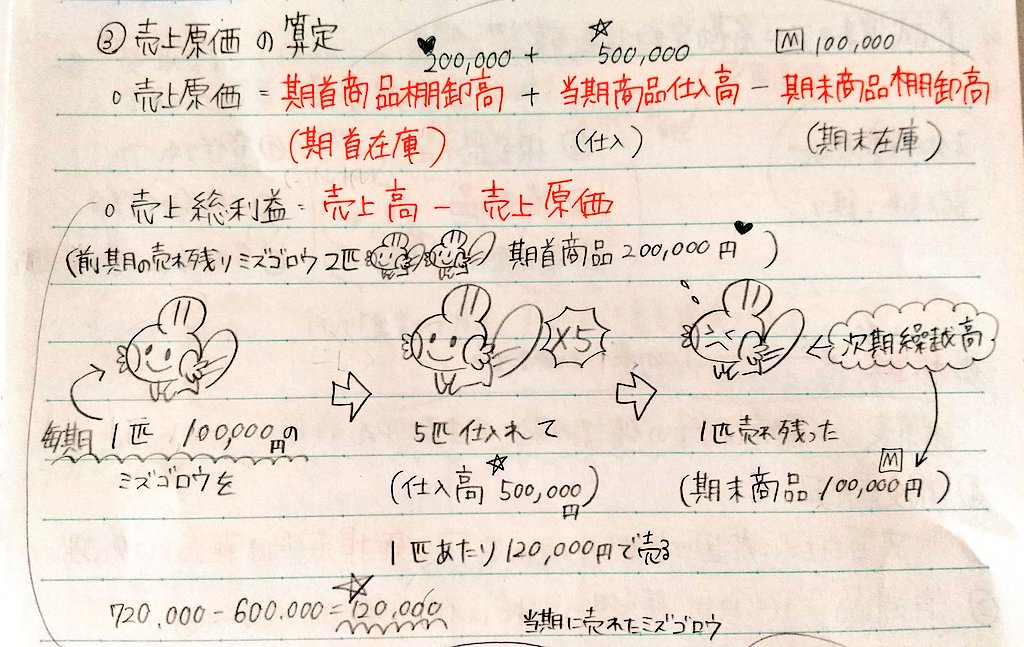 ③ 売上原価の算定
♥200,000 + ☆500,000 M 100,000
○ 売上原価 = 期首商品棚卸高 + 当期商品仕入高 − 期末商品棚卸高
(期首在庫) (仕入) (期末在庫)
○ 売上総利益 = 売上高 − 売上原価
(前期の売れ残りミズゴロウ2匹 期首商品200,000円♥)
×5
次期繰越高
毎期 1匹 100,000円の
ミズゴロウを
5匹仕入れて
(仕入高 ☆500,000円)
1匹売れ残った
(期末商品 M 100,000円)
1匹あたり120,000円で売る
720,000−600,000=☆120,000
当期に売れたミズゴロウ